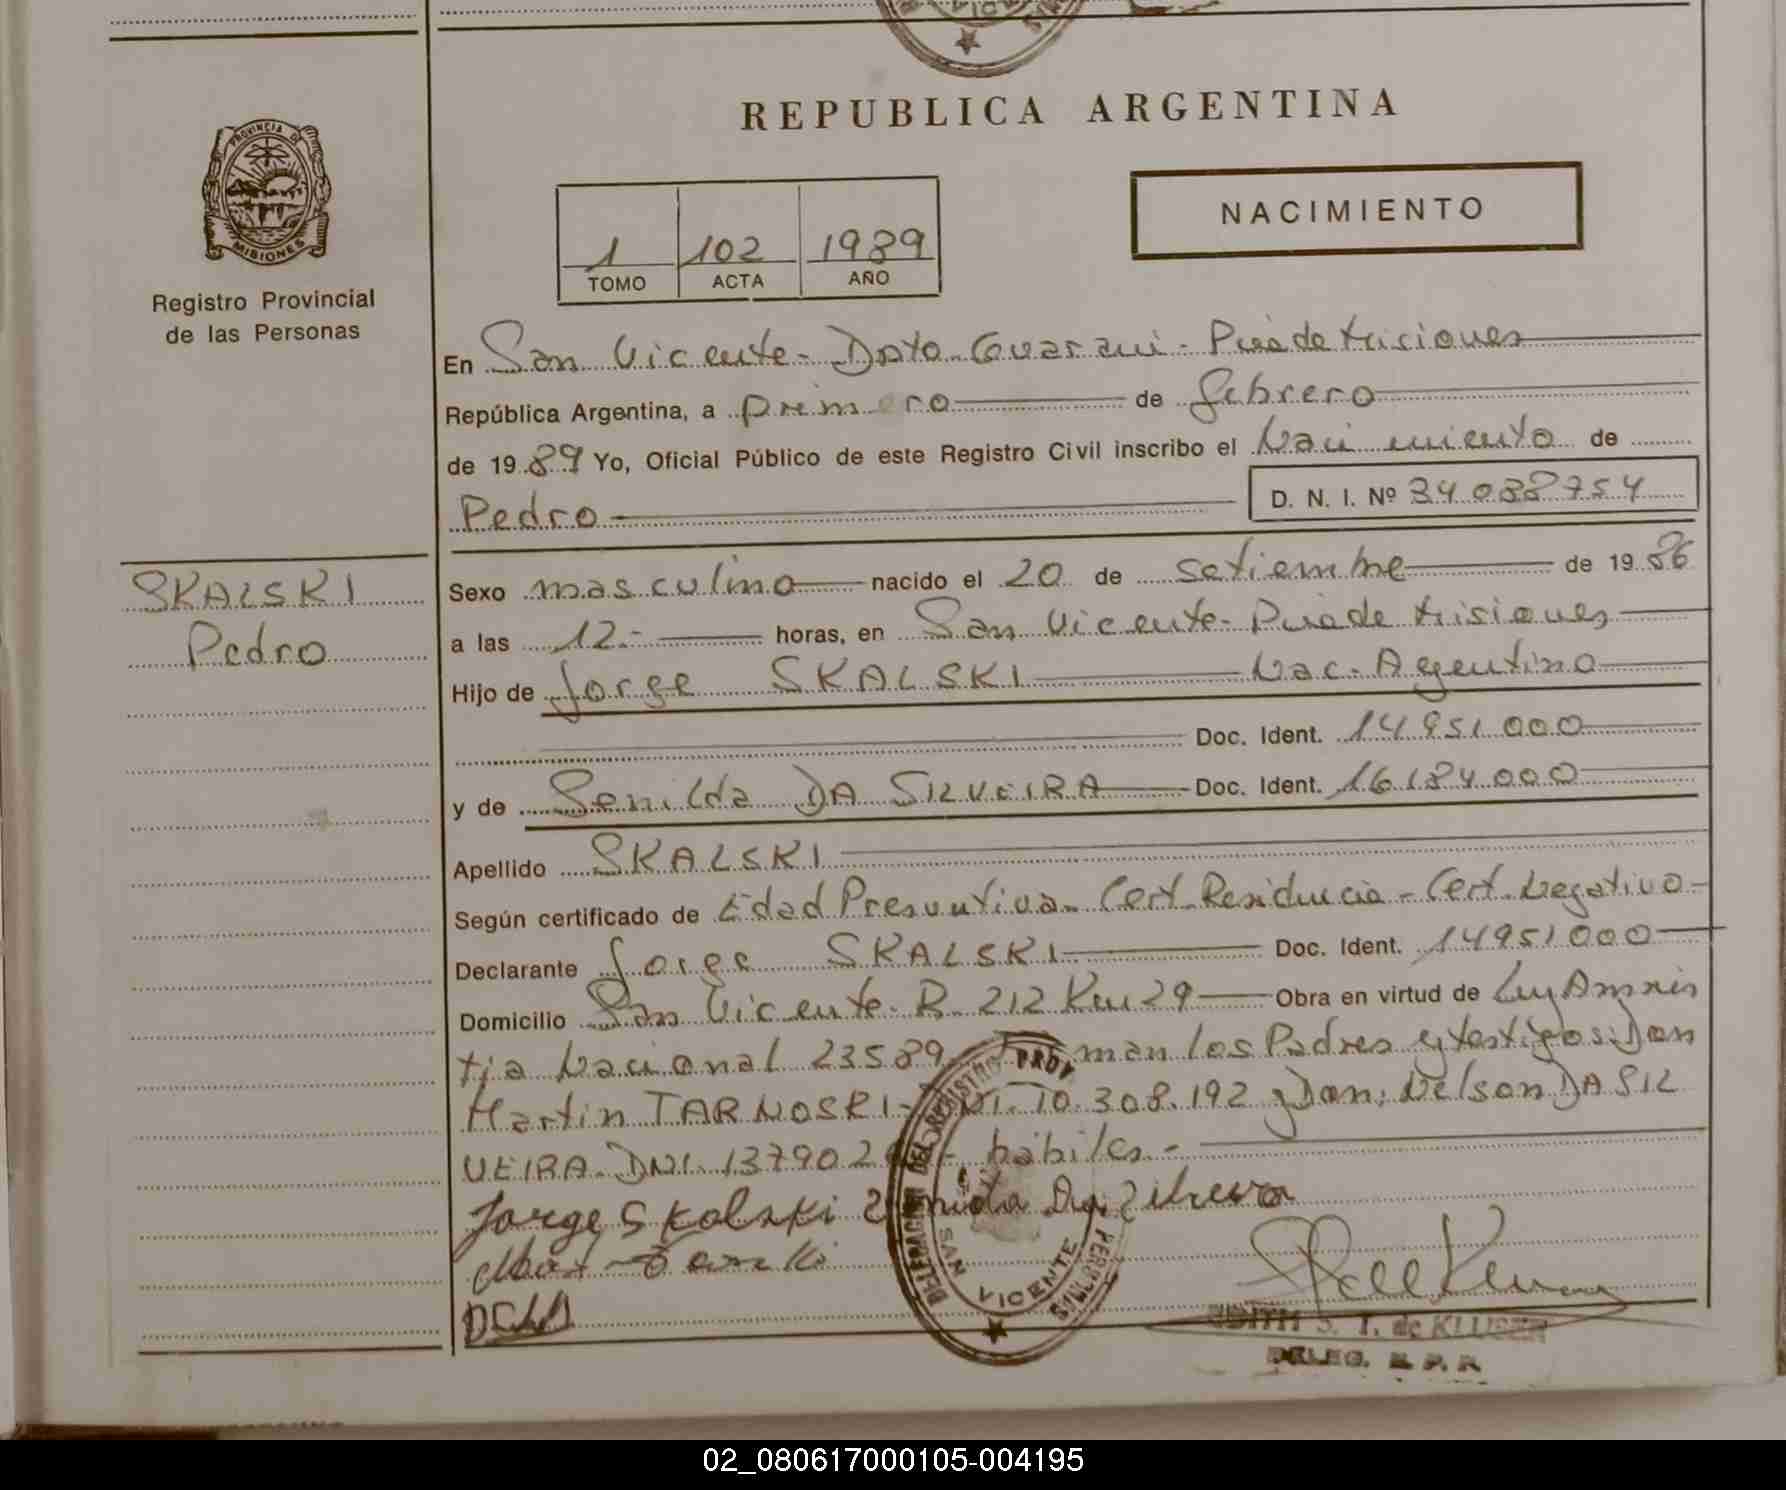 REPUBLICA ARGENTINA
PROVINCIA DE
MISIONES
Registro Provincial
de las Personas
NACIMIENTO
1 102 1989
TOMO ACTA AÑO
En San Vicente - Dpto Guarani - Pciade Misiones
República Argentina, a primero de febrero
de 1989 Yo, Oficial Público de este Registro Civil inscribo el Nacimiento de
Pedro D. N. I. Nº 34.038.754
SKALSKI
Pedro
Sexo masculino nacido el 20 de setiembre de 1986
a las 12.- horas, en San Vicente - Pciade Misiones
Hijo de Jorge SKALSKI Nac. Argentino
Doc. Ident. 14.951.000
y de DA SILVEIRA Doc. Ident. 16.184.000
Apellido SKALSKI
Según certificado de Edad Presuntiva - Cert. Residencia - Cert. Negativo -
Declarante Jorge SKALSKI Doc. Ident. 14951000
Domicilio San Vicente - R. 212 Km 29 Obra en virtud de Ley Amnis
tia Nacional 23589. Firman los Padres y testigos: Don
Martin TARNOSKI - DNI. 10.308.192 y Don: Nelson DA SIL
VEIRA - DNI. 137902 - habiles.-
Jorge Skalski
DELEGACION DEL REGISTRO PROV
SAN VICENTE
EDITH S. T. de KLUSER
DELEG. R. P. P.
02_080617000105-004195